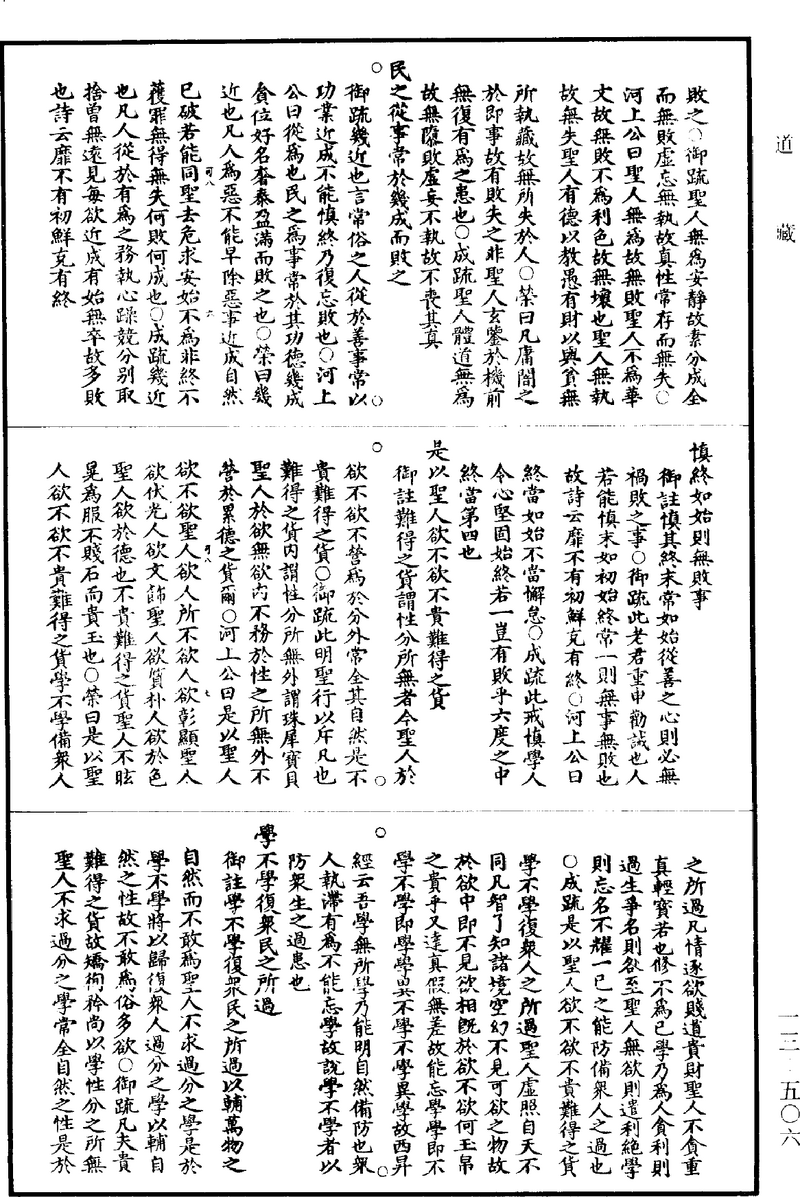 道藏
敗之〇御疏聖人無為安靜故素分成全
而無敗虛忘無執故真性常存而無失〇
河上公曰聖人無為故無敗聖人不為華
文故無敗不為利色故無壞也聖人無執
故無失聖人有德以教愚有財以與貧無
所執藏故無所失於人〇榮曰凡庸闇之
於即事故有敗失之非聖人玄鑒於機前
無復有為之患也〇成疏聖人體道無為
故無隳敗虛妄不執故不喪其真
民之從事常於幾成而敗之
御疏幾近也言常俗之人從於善事常以
功業近成不能慎終乃復忘敗也〇河上
公曰從為也民之為事常於其功德幾成
貪位好名奢泰盈滿而敗之也〇榮曰幾
近也凡人為惡不能早除惡事近成自然
已破若能同聖去危求安始不為非終不
獲罪無得無失何敗何成也〇成疏幾近
也凡人從於有為之務執心躁競分別取
捨曾無遠見每欲近成有始無卒故多敗
也詩云靡不有初鮮克有終
慎終如始則無敗事
御註慎其終末常如始從善之心則必無
禍敗之事〇御疏此老君重申勸誡也人
若能慎末如初始終常一則無事無敗也
故詩云靡不有初鮮克有終〇河上公曰
終當如始不當懈怠〇成疏此戒慎學人
令心堅固始終若一豈有敗乎六度之中
終當第四也
是以聖人欲不欲不貴難得之貨
御註難得之貨謂性分所無者今聖人於
欲不欲不營為於分外常全其自然是不
貴難得之貨〇御疏此明聖行以斥凡也
難得之貨內謂性分所無外謂珠犀寶貝
聖人於欲無欲內不務於性之所無外不
營於累德之貨爾〇河上公曰是以聖人
欲不欲聖人欲人所不欲人欲彰顯聖人
欲伏光人欲文飾聖人欲質朴人欲於色
聖人欲於德也不貴難得之貨聖人不眩
晃為服不賤石而貴玉也〇榮曰是以聖
人欲不欲不貴難得之貨學不學備眾人
之所過凡情逐欲賤道貴財聖人不貪重
真輕寶若也修不為己學乃為人貪利則
過生爭名則欲至聖人無欲則遣利絕學
則忘名不耀一己之能防備眾人之過也
〇成疏是以聖人欲不欲不貴難得之貨
學不學復眾人之所過聖人虛照自天不
同凡智了知諸境空幻不見可欲之物故
於欲中即不見欲相既於欲不欲何玉帛
之貴乎又達真假無差故能忘學學即不
學不學即學學異不學不學異學故西昇
經云吾學無所學乃能明自然備防也眾
人執滯有為不能忘學故說學不學者以
防眾生之過患也
學不學復眾民之所過
御註學不學復眾民之所過以輔萬物之
自然而不敢為聖人不求過分之學是於
學不學將以歸復眾人過分之學以輔自
然之性故不敢為俗多欲〇御疏凡夫貴
難得之貨故矯徇矜尚以學性分之所無
聖人不求過分之學常全自然之性是於
一二三‧五〇六